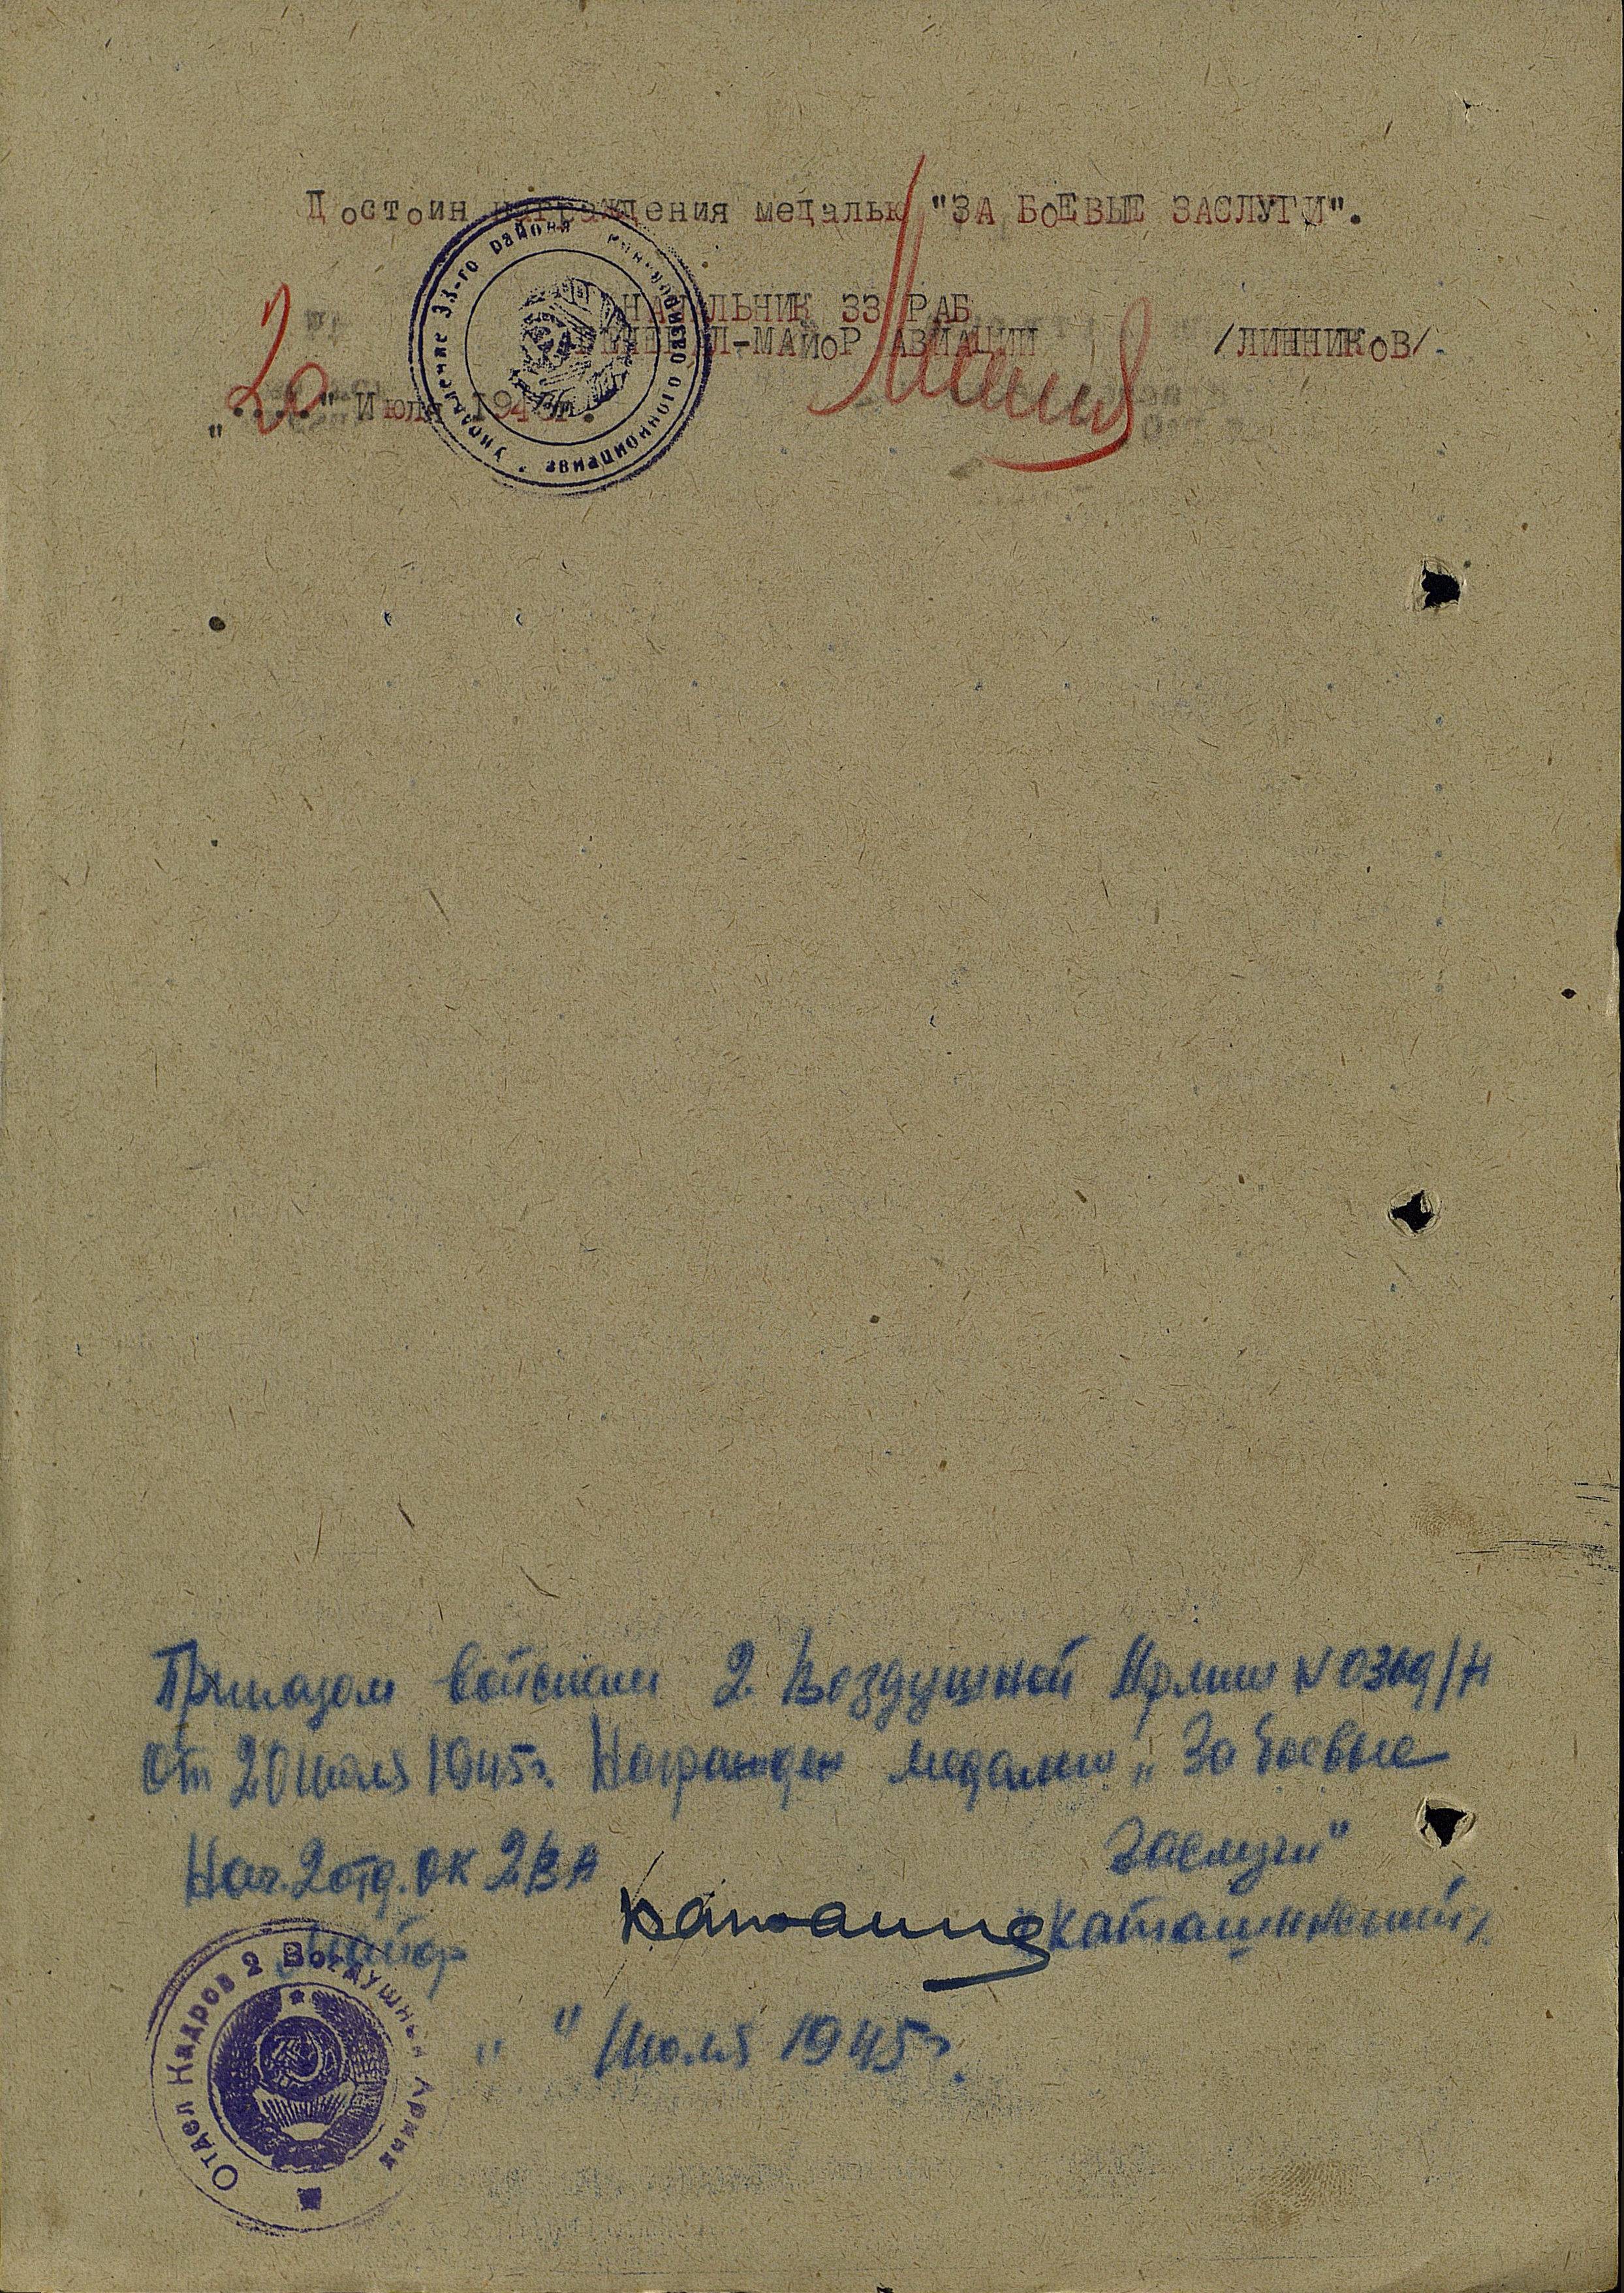 Достоин награждения медалью "ЗА БОЕВЫЕ ЗАСЛУГИ".
НАЧАЛЬНИК 33 РАБ
ГЕНЕРАЛ-МАЙОР АВИАЦИИ /ЛИННИКОВ/.
"20" Июля 194 г.
Управление 33-го района авиационного базирования
Приказом войскам 2 Воздушной Армии N /Н
от 20 июля 1945г. Награжден медалью „За боевые
Заслуги"
Нач. 2 отд. ОК 2 ВА
Майор
" " Июля 1945г.
Отдел Кадров 2 Воздушный Армии